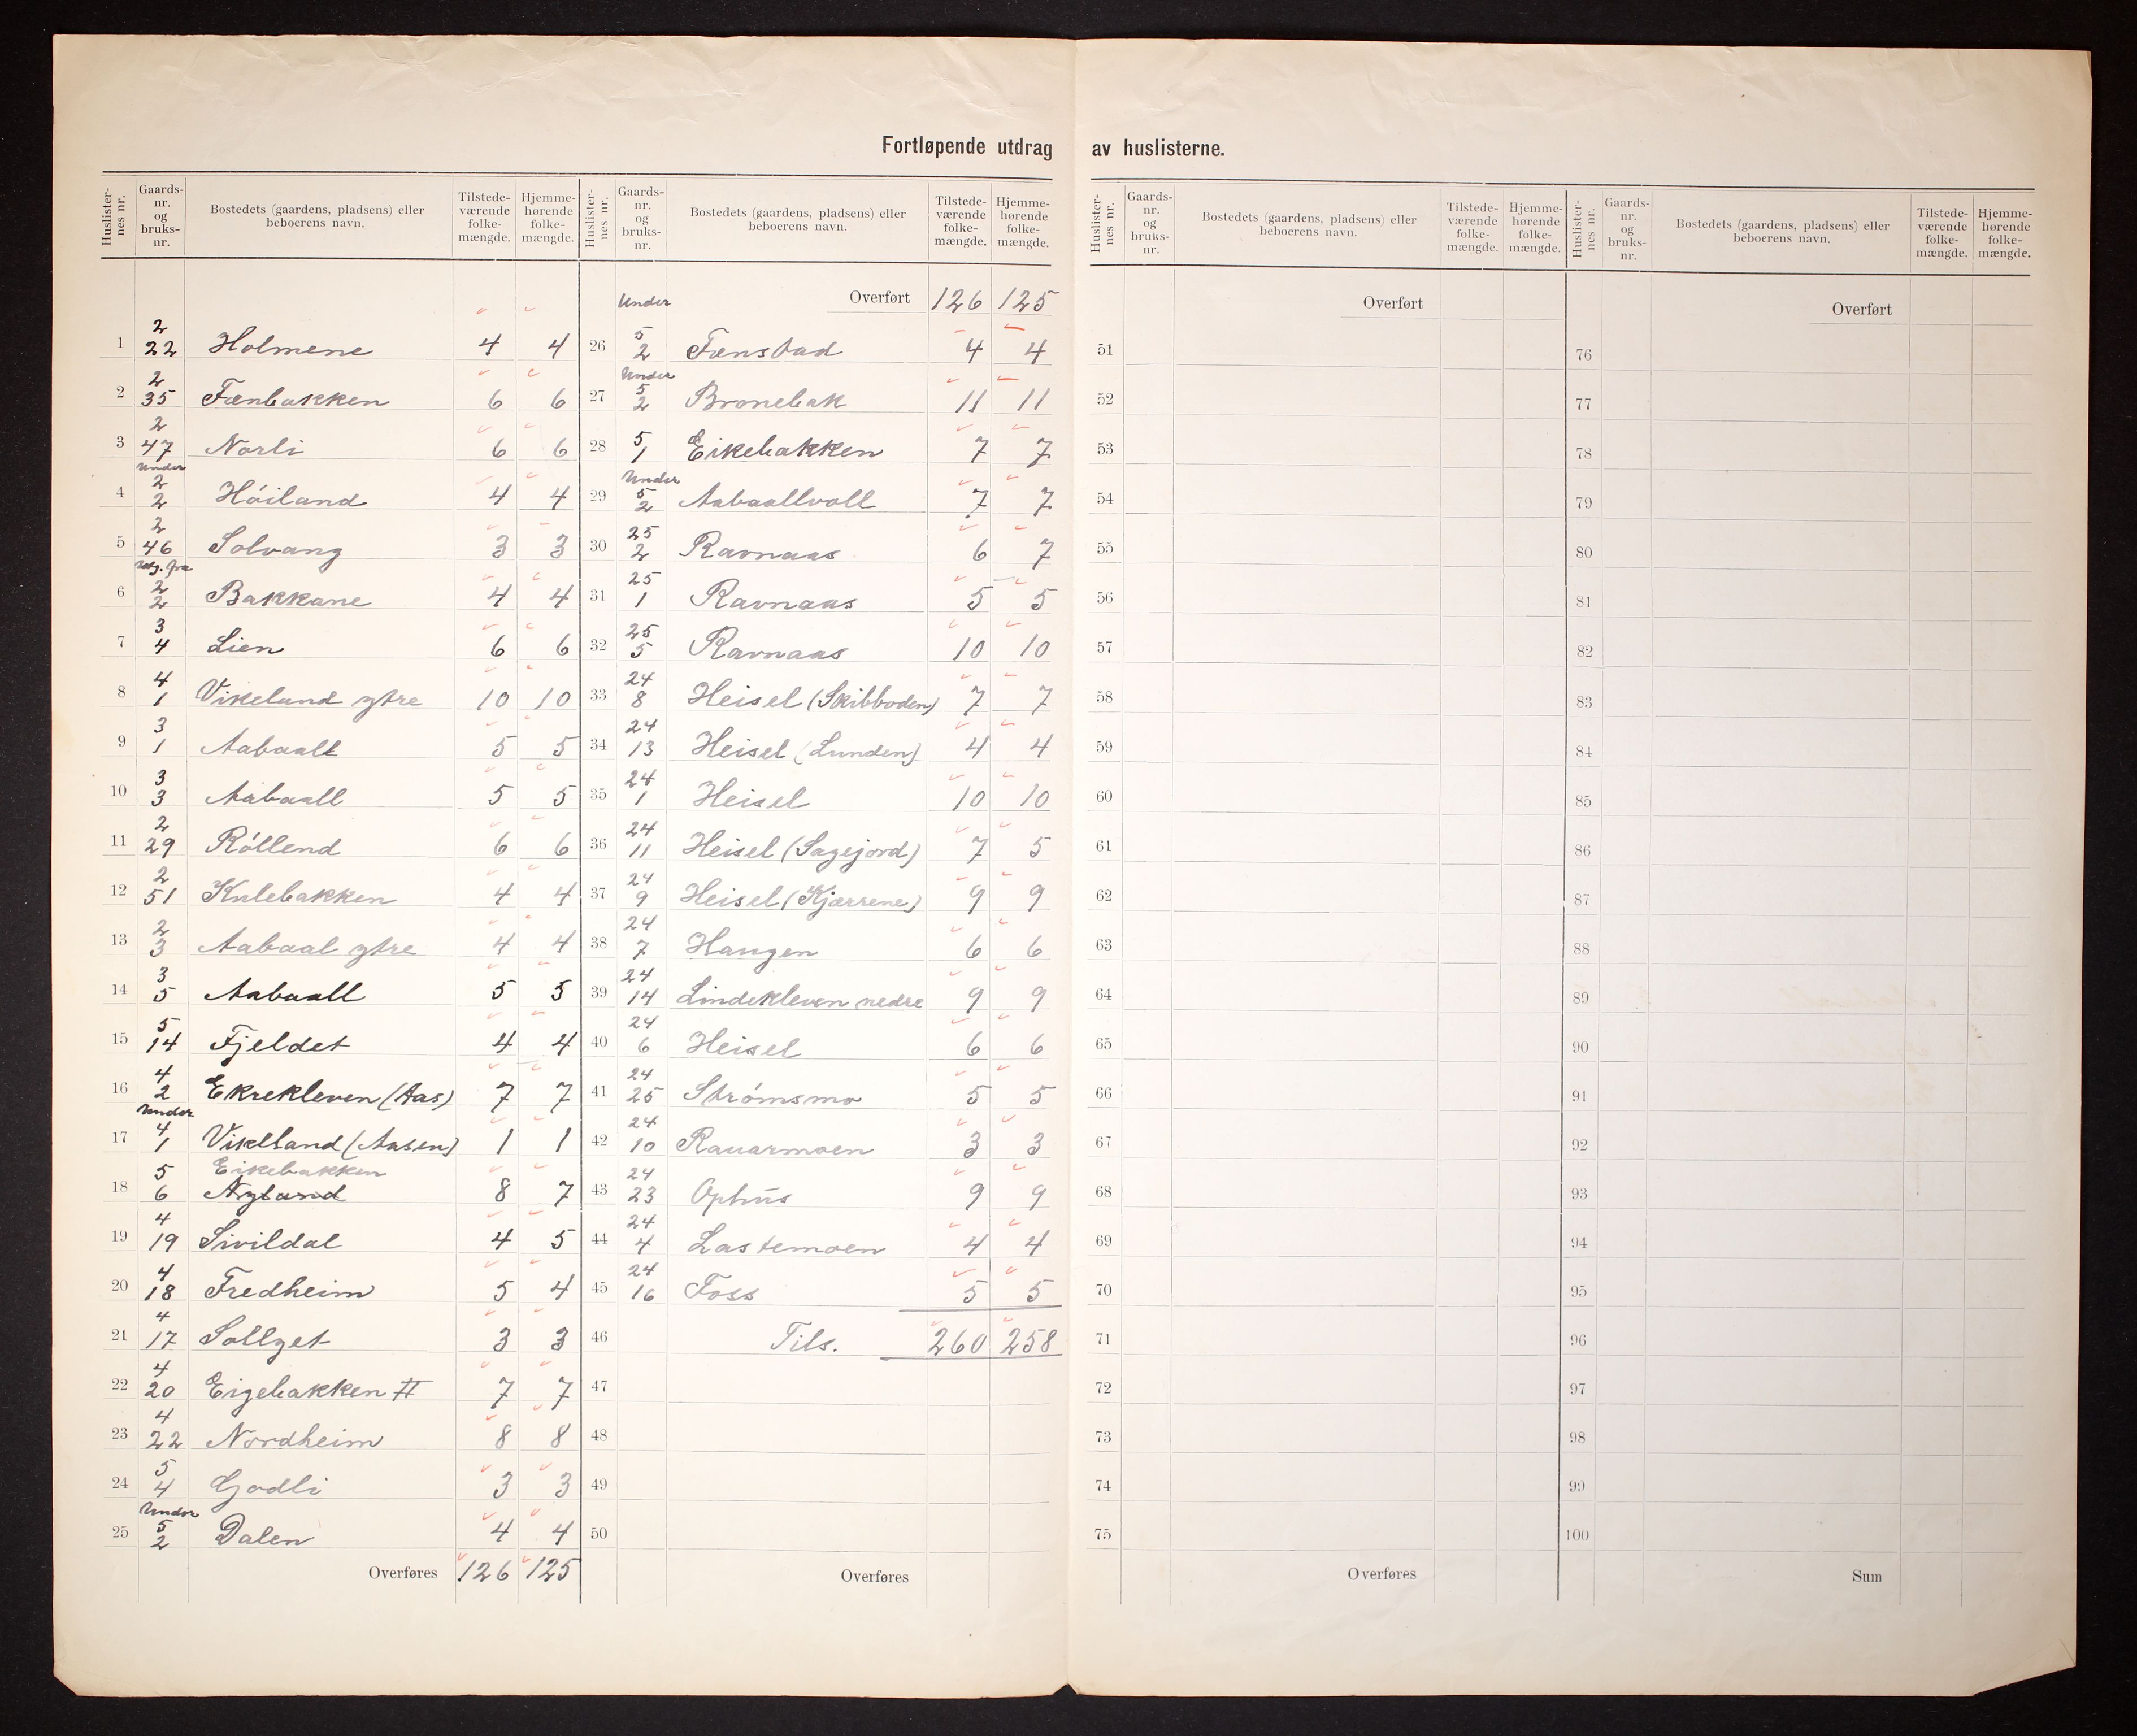 Fortløpende utdrag av huslisterne.
Huslister-nes nr. Gaards-nr. og bruks-nr. Bostedets (gaardens, pladsens) eller beboerens navn. Tilstede-værende folke-mængde. Hjemme-hørende folke-mængde.
1 2 22 Holmene 4 4
2 2 35 Fænbakken 6 6
3 2 47 Norli 6 6
4 Under 2 2 Høiland 4 4
5 2 46 Solvang 3 3
6 Utg. fra 2 2 Bakkane 4 4
7 3 4 Lien 6 6
8 4 1 Vikeland ytre 10 10
9 3 1 Aabaall 5 5
10 3 3 Aabaall 5 5
11 2 29 Róllend 6 6
12 2 51 Kulebakken 4 4
13 2 3 Aabaal ytre 4 4
14 3 5 Aabaall 5 5
15 5 14 Fjeldet 4 4
16 4 2 Ekrekleven (Aas) 7 7
17 Under 4 1 Vikelland (Aasen) 1 1
Eikebakken
18 5 6 Nyland 8 7
19 4 19 Sivildal 4 5
20 4 18 Fredheim 5 4
21 4 17 Sollyet 3 3
22 4 20 Eigebakken II 7 7
23 4 22 Nordheim 8 8
24 5 4 Godli 3 3
25 Under 5 2 Dalen 4 4
Overføres 126 125
Huslister-nes nr. Gaards-nr. og bruks-nr. Bostedets (gaardens, pladsens) eller beboerens navn. Tilstede-værende folke-mængde. Hjemme-hørende folke-mængde.
Overført 126 125
26 Under 5 2 Fænstad 4 4
27 Under 5 2 Bronebak 11 11
28 5 1 Eikebakken 7 7
29 Under 5 2 Aabaallvoll 7 7
30 25 2 Ravnaas 6 7
31 25 1 Ravnaas 5 5
32 25 5 Ravnaas 10 10
33 24 8 Heisel (Skibboden) 7 7
34 24 13 Heisel (Lunden) 4 4
35 24 1 Heisel 10 10
36 24 11 Heisel (Sagejord) 7 5
37 24 9 Heisel (Kjærrene) 9 9
38 24 7 Haugen 6 6
39 24 14 Lindekleven nedre 9 9
40 24 6 Heisel 6 6
41 24 25 Strómsmo 5 5
42 24 10 Rauarmoen 3 3
43 24 23 Ophus 9 9
44 24 4 Lastemoen 4 4
45 24 16 Foss 5 5
46 Tils. 260 258
47
48
49
50
Overføres
Huslister-nes nr. Gaards-nr. og bruks-nr. Bostedets (gaardens, pladsens) eller beboerens navn. Tilstede-værende folke-mængde. Hjemme-hørende folke-mængde.
Overført
51
52
53
54
55
56
57
58
59
60
61
62
63
64
65
66
67
68
69
70
71
72
73
74
75
Overføres
Huslister-nes nr. Gaards-nr. og bruks-nr. Bostedets (gaardens, pladsens) eller beboerens navn. Tilstede-værende folke-mængde. Hjemme-hørende folke-mængde.
Overført
76
77
78
79
80
81
82
83
84
85
86
87
88
89
90
91
92
93
94
95
96
97
98
99
100
Sum